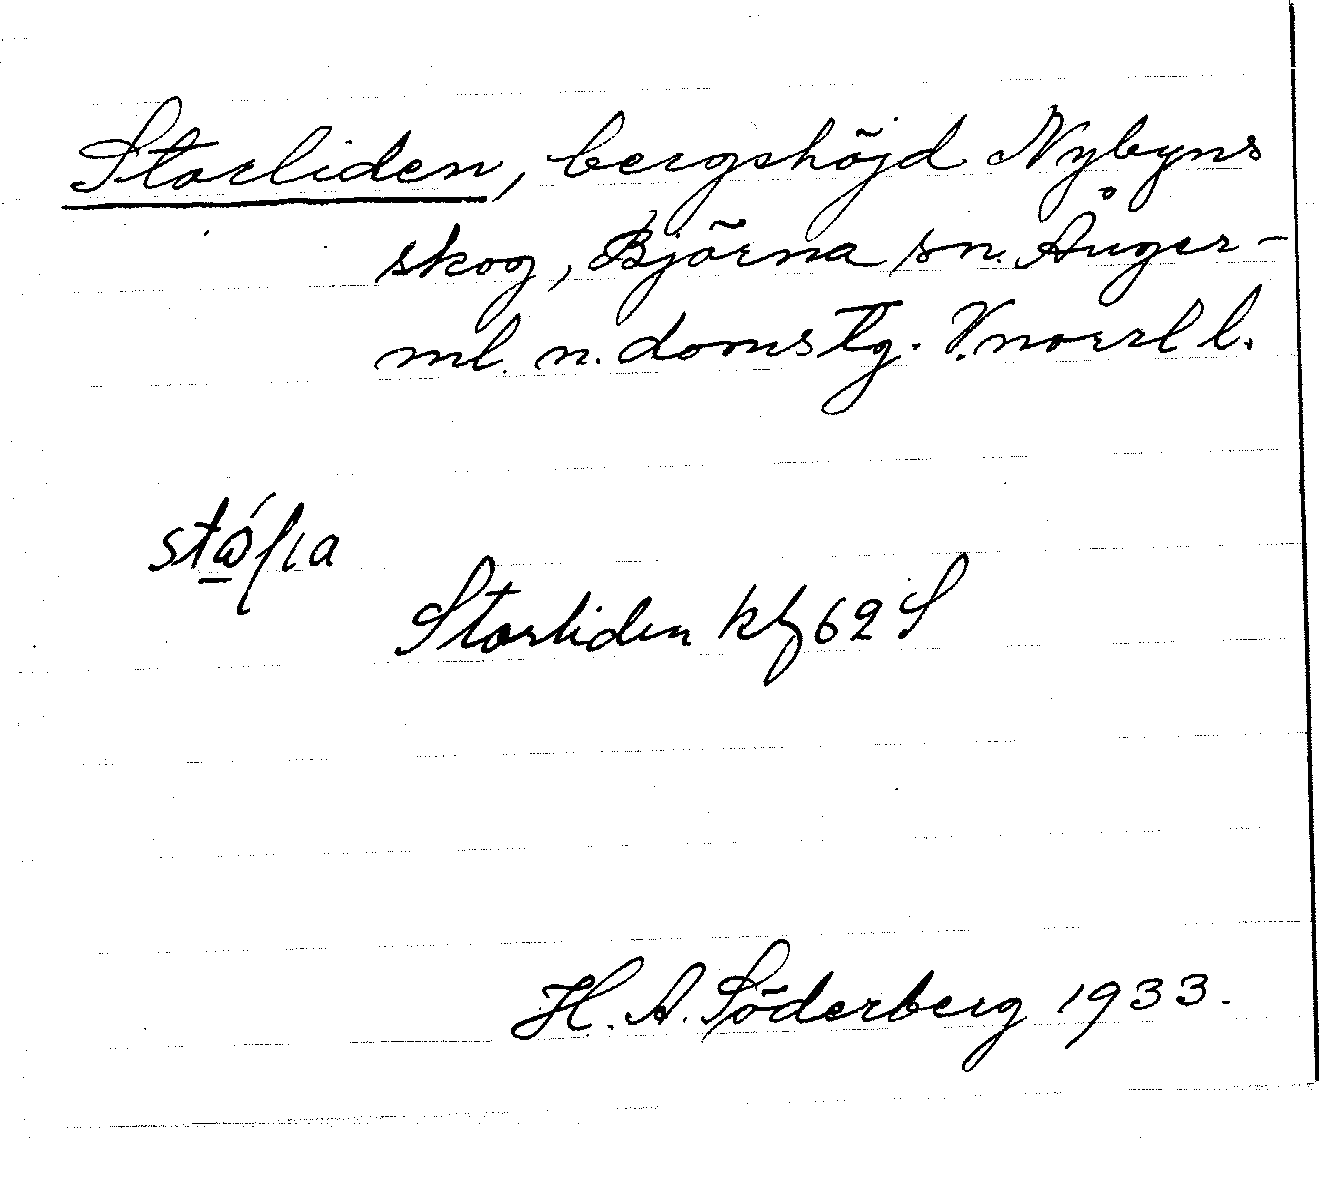 Storliden, bergshöjd Nybyns
skog, Björna sn. Ånger-
ml. n. domstg. V.norrl l.
Storliden kbg 62 S
H. A. Söderberg 1933.